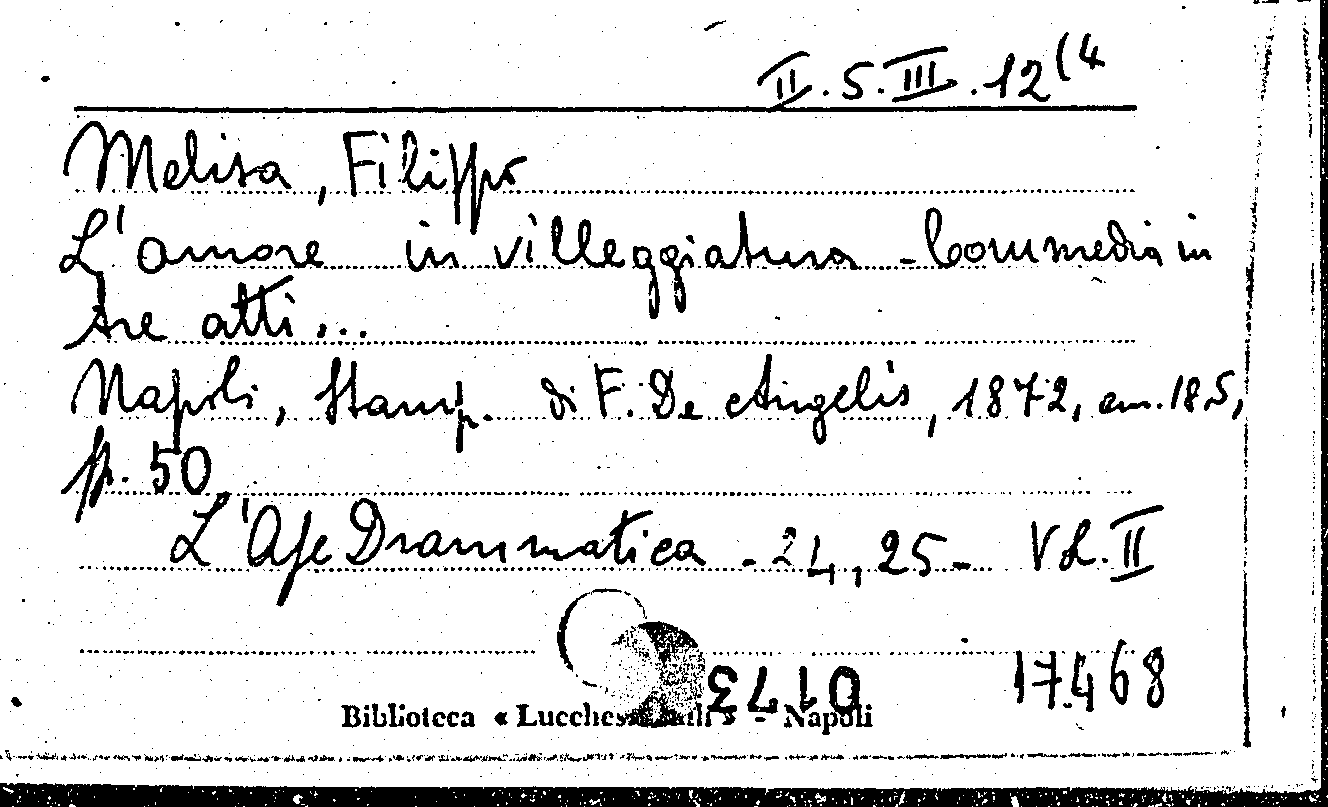 II.5.III.12(4
Melisa, Filippo
L'amore in villeggiatura - Commedia in
tre atti...
Napoli, Stamp. di F. De Angelis, 1872, cm. 18.5,
pp. 50
L'Ape Drammatica - 24, 25 - Vol. II
0173
17468
Biblioteca « Lucchesi Palli » - Napoli